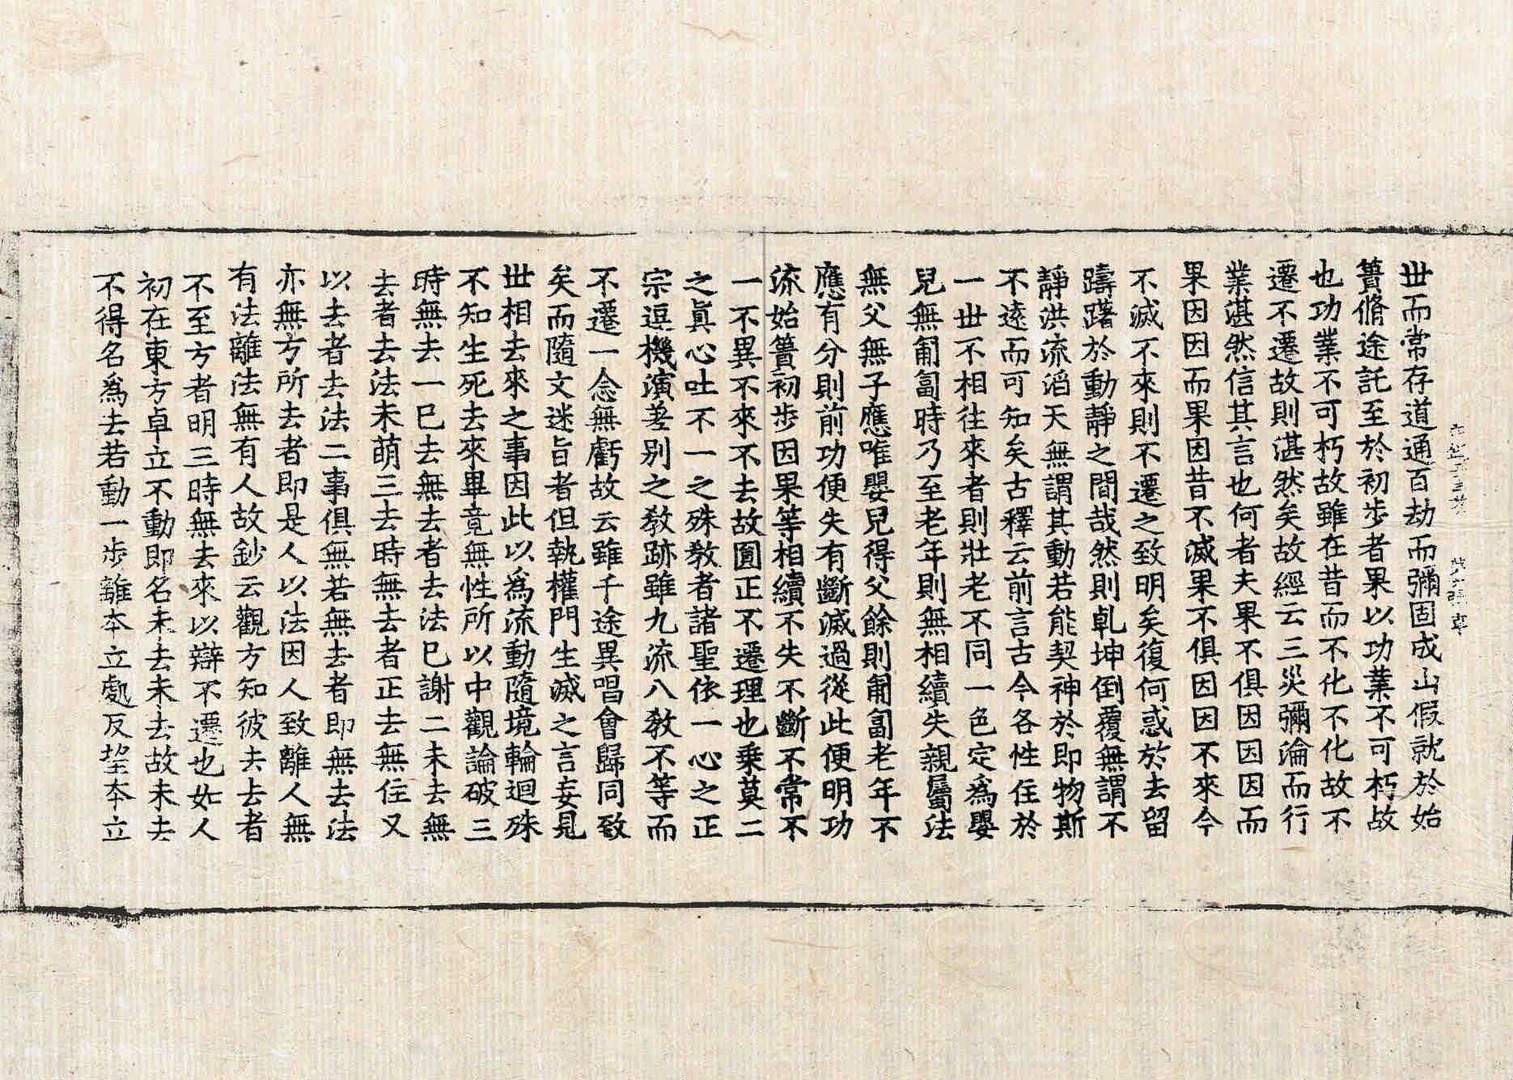 世而常存道通百劫而彌固成山假就於始
簣脩途託至於初步者果以功業不可朽故
也功業不可朽故雖在昔而不化不化故不
遷不遷故則湛然矣故經云三災彌淪而行
業湛然信其言也何者夫果不俱因因因而
果因因而果因昔不滅果不俱因因不來今
不滅不來則不遷之致明矣復何惑於去留
躊躇於動靜之間哉然則乹坤倒覆無謂不
靜洪流滔天無謂其動若能契神於即物斯
不遠而可知矣古釋云前言古今各性住於
一世不相往來者則壯老不同一色定爲嬰
兒無匍匐時乃至老年則無相續失親屬法
無父無子應唯嬰兒得父餘則匍匐老年不
應有分則前功便失有斷滅過從此便明功
流始簣初步因果等相續不失不斷不常不
一不異不來不去故圓正不遷理也乗莫二
之眞心吐不一之殊教者諸聖依一心之正
宗逗機演差别之教跡雖九流八教不等而
不遷一念無虧故云雖千途異唱會歸同致
矣而隨文迷旨者但執權門生滅之言妄見
世相去來之事因此以爲流動隨境輪迴殊
不知生死去來畢竟無性所以中觀論破三
時無去一已去無去者去法已謝二未去無
去者去法未萌三去時無去者正去無住又
以去者去法二事俱無若無去者即無去法
亦無方所去者即是人以法因人致離人無
有法離法無有人故鈔云觀方知彼去去者
不至方者明三時無去來以辯不遷也如人
初在東方卓立不動即名未去未去故未去
不得名爲去若動一步離本立處反望本立